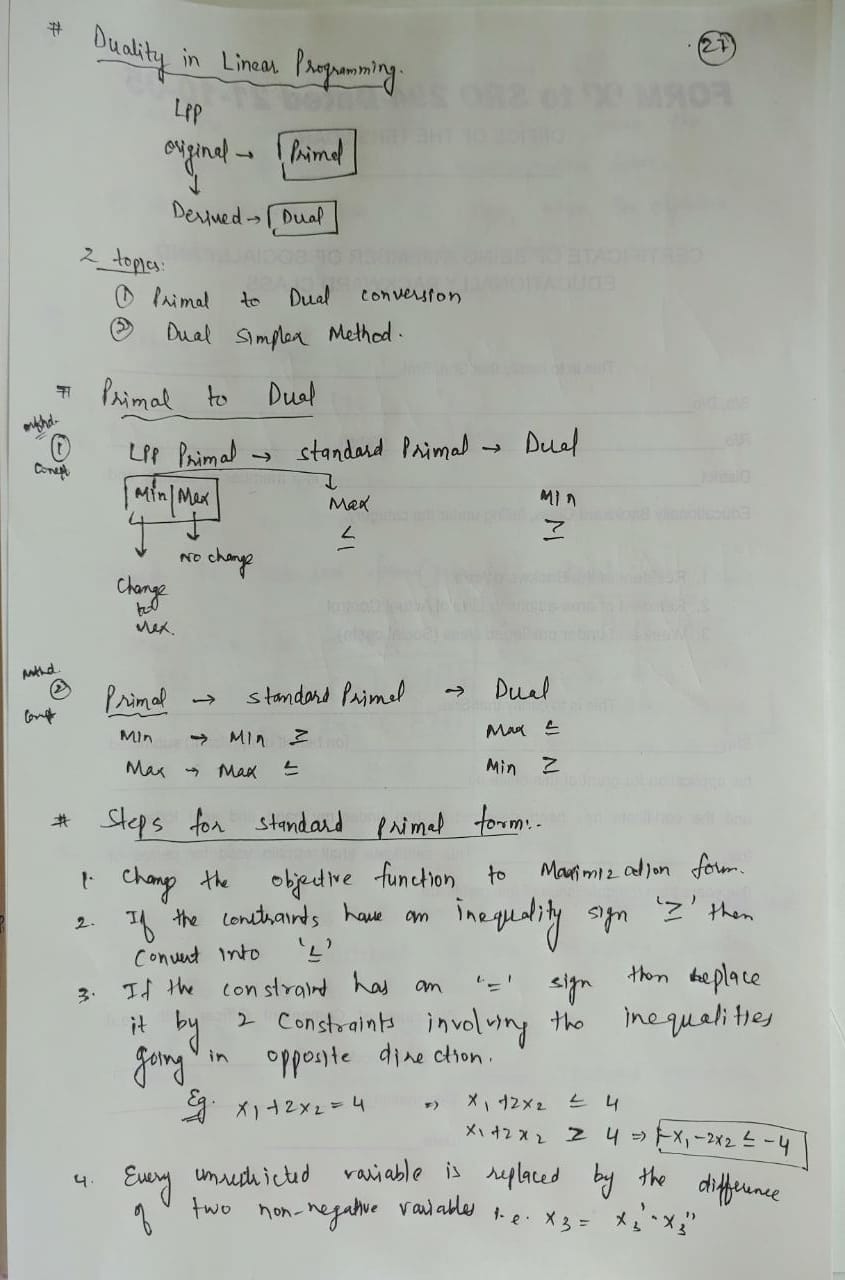 # Duality in Linear Programming.
27
LPP
original → Primal
↓
Derived → Dual
2 topics:
① Primal to Dual conversion
② Dual Simplex Method.
# Primal to Dual
method-
① LPP Primal → standard Primal → Dual
Concept
Min | Max Max Min
≤ ≥
No change
Change
to
Max.
Method
② Primal → standard Primal → Dual
Concept
Min → Min ≥ Max ≤
Max → Max ≤ Min ≥
# Steps for standard primal form:-
1. Change the objective function to Maximization form.
2. If the constraints have an inequality sign '≥' then
Convert into '≤'
3. If the constraint has an '=' sign then replace
it by 2 Constraints involving the inequalities
going in opposite direction.
Eg. x₁+2x₂=4 ⇒ x₁+2x₂ ≤ 4
x₁+2x₂ ≥ 4 ⇒ -x₁-2x₂ ≤ -4
4. Every unrestricted variable is replaced by the difference
of two non-negative variables i.e. x₃ = x₃' - x₃''